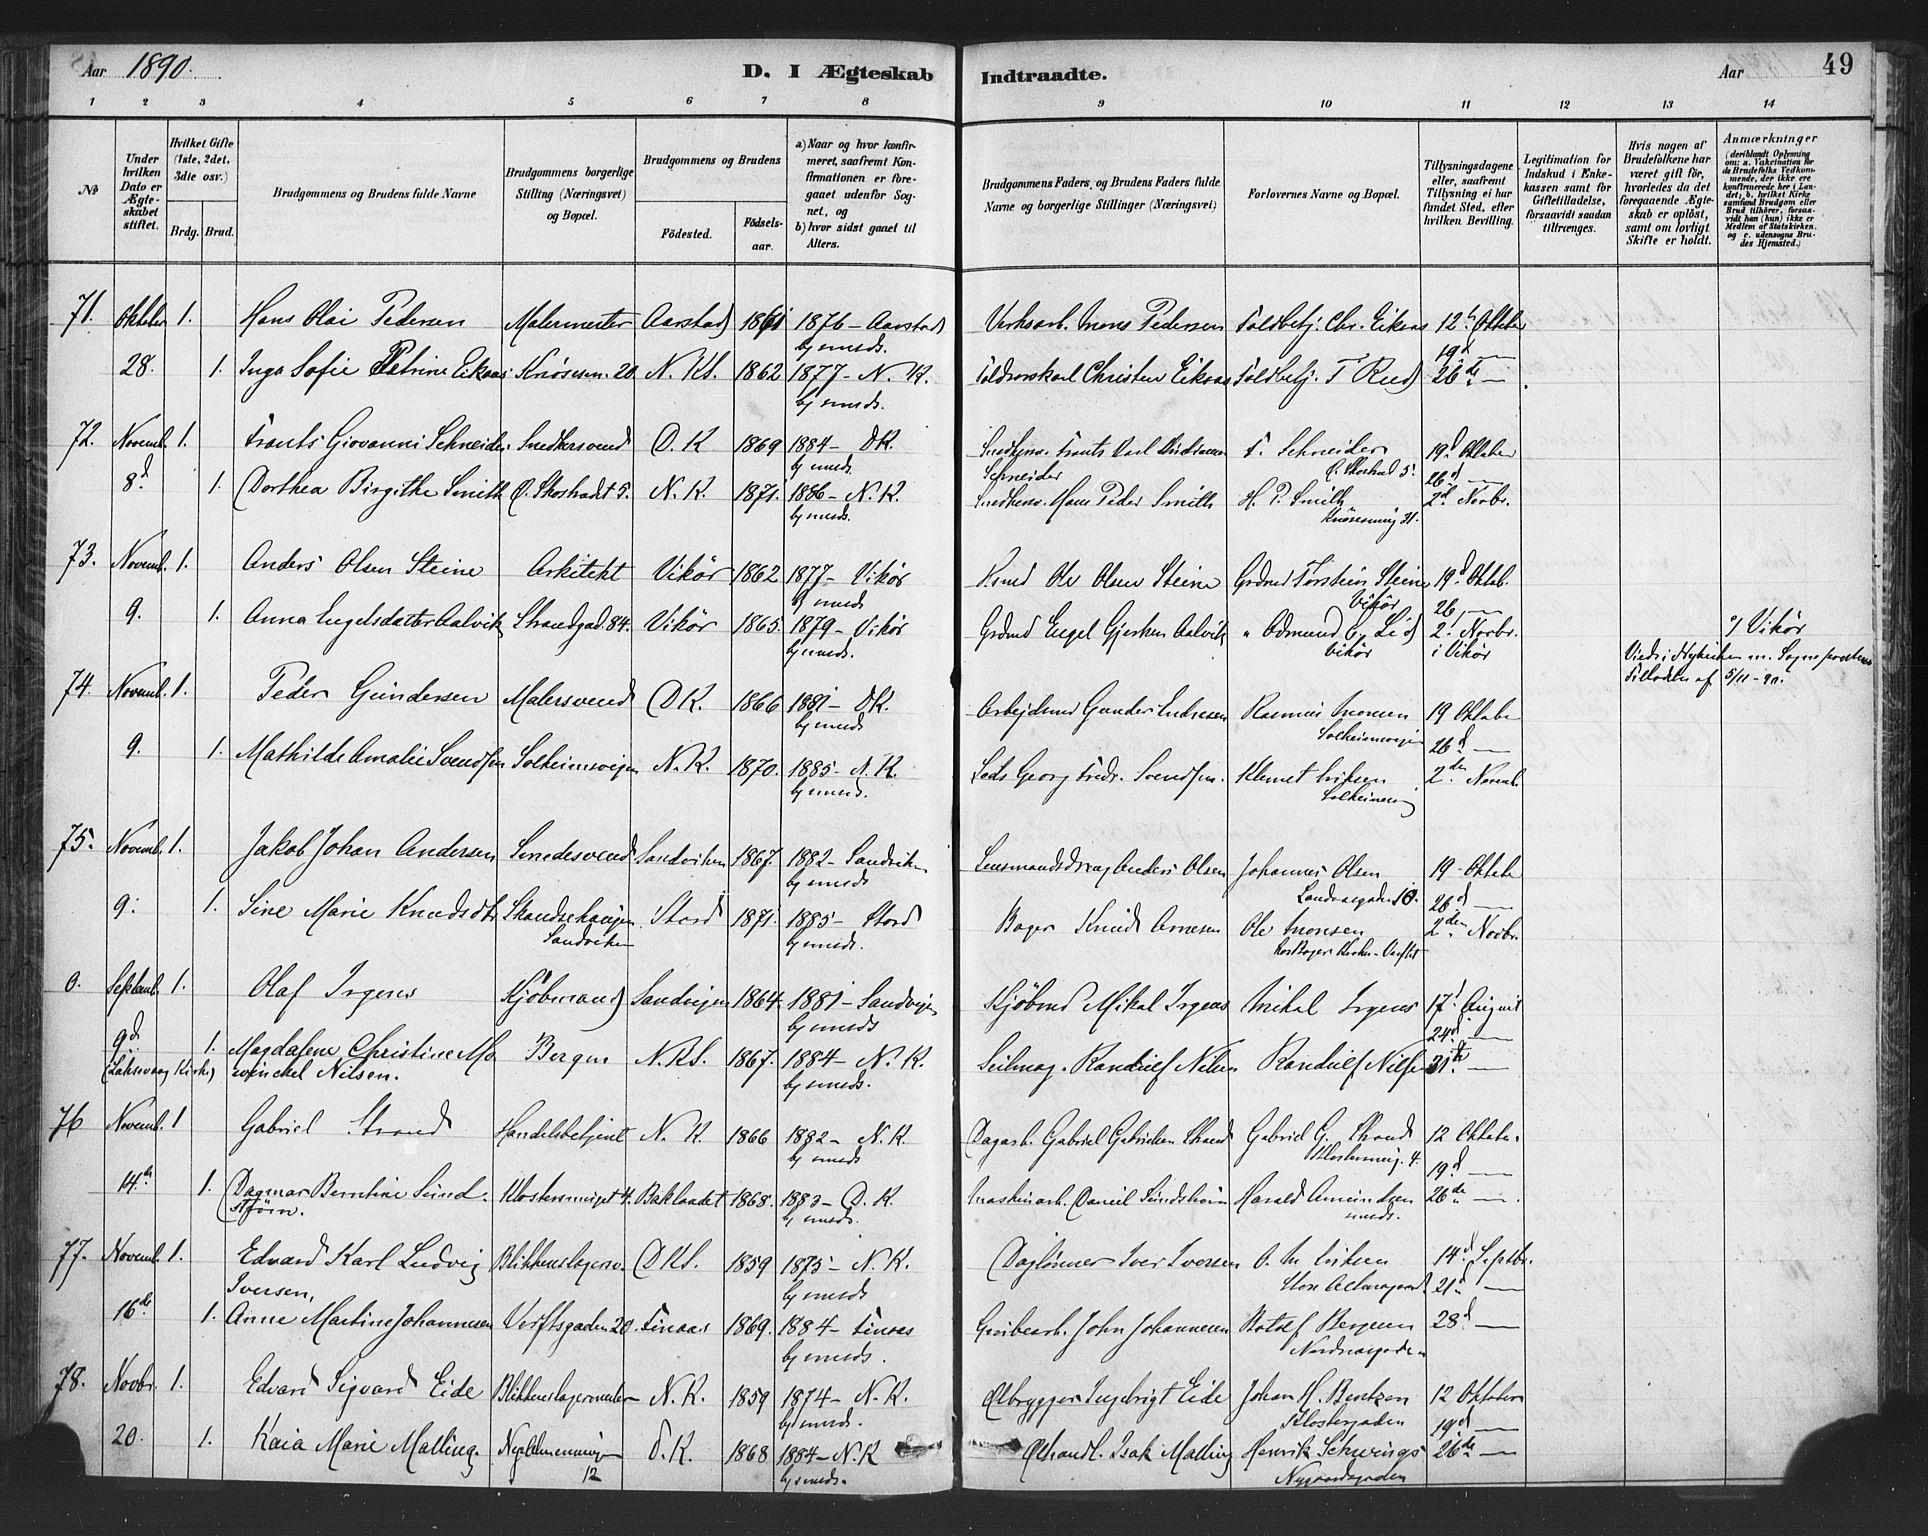 Aar 1890. D. I Ægteskab Indtraadte. Aar 49
1 2 3 4 5 6 7 8 9 10 11 12 13 14
No
Under hvilken Dato er Ægteskabet stiftet.
Hvilket Gifte (1ste, 2det, 3die osv.)
Brdg. Brud.
Brudgommens og Brudens fulde Navne
Brudgommens borgerlige Stilling (Næringsvei) og Bopæl.
Brudgommens og Brudens
Fødested. Fødsels-aar.
a) Naar og hvor konfirmeret, saafremt Konfirmationen er foregaaet udenfor Sognet, og
b) hvor sidst gaaet til Alters.
Brudgommens Faders, og Brudens Faders fulde Navne og borgerlige Stillinger (Næringsvei)
Forlovernes Navne og Bopæl.
Tillysningsdagene eller, saafremt Tillysning ei har fundet Sted, efter hvilken Bevilling.
Legitimation for Indskud i Enkekassen samt for Giftetilladelse, forsaavidt saadan tiltrænges.
Hvis nogen af Brudefolkene har været gift før, hvorledes da det foregaaende Ægteskab er opløst, samt om lovligt Skifte er holdt.
Anmærkninger
(deriblandt Oplysning om: a. Vakcination for de Brudefolks Vedkommende, der ikke ere konfirmerede her i Landet; b. hvilket Kirkesamfund Brudgom eller Brud tilhører, forsaavidt han (hun) ikke er Medlem af Statskirken. og c. udensogns Brudes Hjemsted.)
71. Oktober 1. Hans Olai Pedersen Malermester Aarstad 1861 1876 - Aarstad Verksarb. Mons Pedersen Toldbetj. Chr. Eikaas 12te Oktober
begge meds. 19d —
28. 1. Inga Sofie Petrine Eikaas Knøsesm. 20 N. Ks. 1862 1877 - N. K. Toldrorskarl Christen Eikaas Toldbetj. T Rud 26de —
72. Novemb. 1. Frants Giovanni Schneider Snedkersvend D. K 1869 1884 - DK. Snedkersv. Frants Karl F. Schneider 19d Oktober
Schneider Ø. Skostræd 5. 26d —
8d 1. Dorthea Birgithe Smith Ø. Skostrædet 5. N. K. 1871. 1886 - N. K. Snedkersv. Hans Peder Smith H. P. Smith 2d Novbr.
73. Novemb. 1. Anders Olsen Steine Arkitekt Vikør 1862 1877 - Vikør Ole Olsen Steine Grdmd Torstein Steine 19d Oktob.
Vikør 26 —
9. 1. Anna Engelsdatter Aalvik Strandgad. 84. Vikør 1865. 1879 - Vikør Grdmd Engel Aalvik " Odmund Lid 2. Novbr. c/ Vikør
Vikør i Vikør
Viede i Nykirken m. Sognepræstens Tilladelse af 5/11 - 90.
74. Novemb. 1. Peder Gundersen Malersvend DK. 1866 1881 - DK. Arbejdsmd Gunder Endresen Rasmus Monsen 19 Oktober
Solheimsvigen 26d —
9. 1. Mathilde Amalie Svendsen Solheimsvigen N. K. 1870. 1885 - N. K. Georg Fredr. Svendsen. Klemet Eriksen 2den Novemb.
75. Novemb. 1. Jakob Johan Andersen Smedesvend Sandviken 1867. 1882 - Sandviken Lensmandsdreng Anders Olsen Johannes Olsen 19 Oktober
26d —
9. 1. Sine Marie Knudsdtr Skandsehaugen Stord 1871. 1885 - Stord Bager Knud Arnesen Ole Monsen 2den Novbr.
Sandviken
0. Septemb. 1. Olaf Irgens Kjøbmand Sandvigen 1864. 1881 - Sandvigen Kjøbmd Mikal Irgens Mikal Irgens 17. August
24d —
9d. 1. Magdalene Christine Mowinckel Nilsen. Bergen N. Ks. 1867. 1884 - N. K. Seilmag. Randulf Nilsen Randulf Nilsen 31te —
(Laksevaag Kirke)
76 Novemb. 1 Gabriel Strand Handelsbetjent N. K. 1866 1882 - N. K. Dagarb. Gabriel Gabrielsen Strand Gabriel G. Strand 12 Oktober
Klostersmug. 4. 19d —
14de 1. Dagmar Berntine Sundstrøm. Klostersmuget 4. Baklandet 1868. 1883 - D. K. Maskinarb. Daniel Sundstrøm Harald Amundsen 26de —
77. Novemb. 1. Edvard Karl Ludvig Iversen, Blikkenslagersv. DKs. 1859 1875 - N. K. Daglønner Iver Iversen O. M. Eriksen 14d Septbr.
21d —
16de 1. Anne Martine Johannesen Verftsgaden 20. Finaas 1869. 1884 - Finaas Grubearb. John Johannesen Rolf Bergesen 28d —
Nordnæsgaden
78. Novbr. 1. Edvard Sigvard Eide Blikkenslagermester N. K. 1859 1874 - N. K. Ølbrygger Ingebrigt Eide Johan H. Bentzen 12 Oktober
Klostergaden 19d —
20. 1. Kaia Marie Malling. 12 D. K. 1868 1884 - N. K Ølhandl. Isak Malling Henrik Schwings 26de —
begge meds. Nygaardsgaden